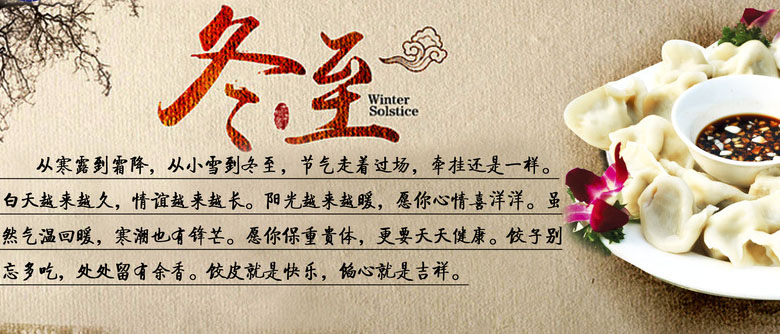 冬至
Winter
Solstice
从寒露到霜降，从小雪到冬至，节气走着过场，牵挂还是一样。
白天越来越久，情谊越来越长。阳光越来越暖，愿你心情喜洋洋。虽
然气温回暖，寒潮也有锋芒。愿你保重贵体，更要天天健康。饺子别
忘多吃，处处留有余香。饺皮就是快乐，馅心就是吉祥。